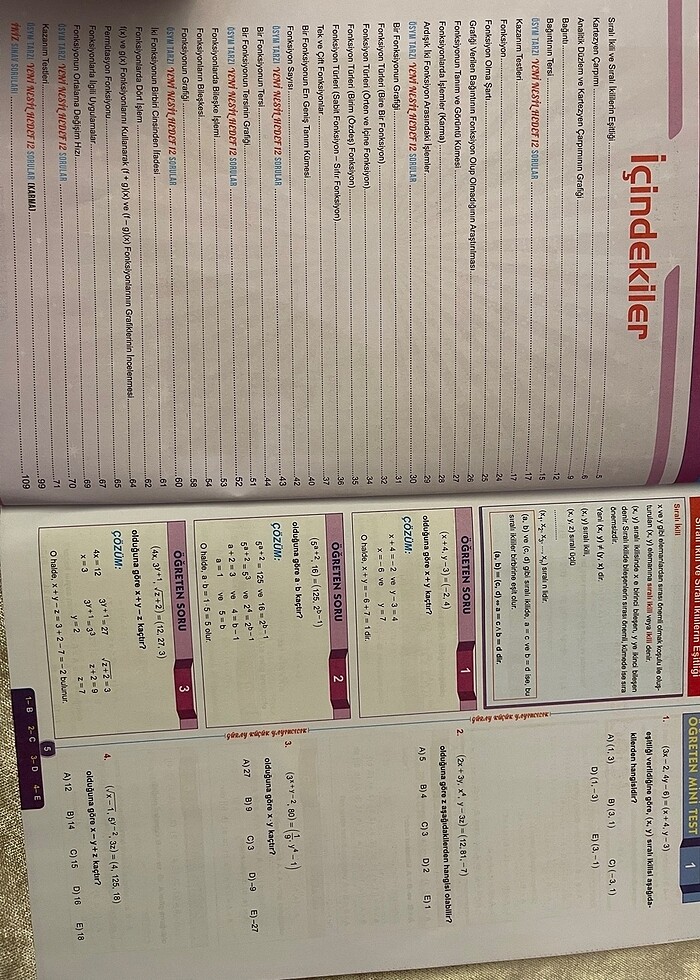 İçindekiler
Sıralı İkili ve Sıralı İkililerin Eşitliği
Kartezyen Çarpımı 5
Analitik Düzlem ve Kartezyen Çarpımının Grafiği 6
Bağıntı 9
Bağıntının Tersi 12
ÖSYM TARZI YENİ NESİL HEDEF 12 SORULAR 15
Kazanım Testleri 17
Fonksiyon 17
Fonksiyon Olma Şartı 24
Grafiği Verilen Bağıntının Fonksiyon Olup Olmadığının Araştırılması 25
Fonksiyonun Tanım ve Görüntü Kümesi 26
Fonksiyonlarda İşlemler (Karma) 27
Ardışık İki Fonksiyon Arasındaki İşlemler 28
ÖSYM TARZI YENİ NESİL HEDEF 12 SORULAR 29
Bir Fonksiyonun Grafiği 30
Fonksiyon Türleri (Bire Bir Fonksiyon) 31
Fonksiyon Türleri (Örten ve İçine Fonksiyon) 32
Fonksiyon Türleri (Birim (Özdeş) Fonksiyon) 34
Fonksiyon Türleri (Sabit Fonksiyon – Sıfır Fonksiyon) 35
Tek ve Çift Fonksiyonlar 36
Bir Fonksiyonun En Geniş Tanım Kümesi 37
Fonksiyon Sayısı 40
ÖSYM TARZI YENİ NESİL HEDEF 12 SORULAR 42
Bir Fonksiyonun Tersi 43
Bir Fonksiyonun Tersinin Grafiği 44
ÖSYM TARZI YENİ NESİL HEDEF 12 SORULAR 51
Fonksiyonlarda Bileşke İşlemi 52
Fonksiyonların Bileşkesi 53
Fonksiyonun Grafiği 54
ÖSYM TARZI YENİ NESİL HEDEF 12 SORULAR 58
İki Fonksiyonun Birbiri Cinsinden İfadesi 60
Fonksiyonlarda Dört İşlem 61
f(x) ve g(x) Fonksiyonlarını Kullanarak (f + g)(x) ve (f – g)(x) Fonksiyonlarının Grafiklerinin İncelenmesi 62
Permütasyon Fonksiyonu 64
Fonksiyonlarla İlgili Uygulamalar 65
Fonksiyonun Ortalama Değişim Hızı 67
ÖSYM TARZI YENİ NESİL HEDEF 12 SORULAR 69
Kazanım Testleri 70
ÖSYM TARZI YENİ NESİL HEDEF 12 SORULAR (KARMA) 71
SORULARI 99
109
Sıralı İkili ve Sıralı İkililerin Eşitliği
Sıralı İkili
x ve y gibi elemanlardan sırası önemli olmak koşulu ile oluş-
turulan (x, y) elemanına sıralı ikili veya ikili denir.
(x, y) sıralı ikilisinde x e birinci bileşen, y ye ikinci bileşen
denir. Sıralı ikilide bileşenlerin sırası önemli, kümede ise sıra
önemsizdir.
Yani (x, y) ≠ (y, x) dir.
(x, y) sıralı ikili,
(x, y, z) sıralı üçlü
............
(x₁, x₂, x₃, ..., xₙ) sıralı n lidir.
(a, b) ve (c, d) gibi sıralı ikilide, a = c ve b = d ise, bu
sıralı ikililer birbirine eşit olur.
(a, b) = (c, d) ⇔ a = c ∧ b = d dir.
ÖĞRETEN SORU 1
(x+4, y–3) = (–2, 4)
olduğuna göre x+y kaçtır?
ÇÖZÜM:
x+4 = –2 ve y–3 = 4
x = –6 ve y = 7
O halde, x+y = –6+7 = 1 dir.
ÖĞRETEN SORU 2
(5ᵃ⁺², 16) = (125, 2ᵇ⁻¹)
olduğuna göre a·b kaçtır?
ÇÖZÜM:
5ᵃ⁺² = 125 ve 16 = 2ᵇ⁻¹
5ᵃ⁺² = 5³ ve 2⁴ = 2ᵇ⁻¹
a+2 = 3 ve 4 = b–1
a = 1 ve 5 = b
O halde, a·b = 1·5 = 5 olur.
ÖĞRETEN SORU 3
(4x, 3ʸ⁺¹, √z+2) = (12, 27, 3)
olduğuna göre x+y–z kaçtır?
ÇÖZÜM:
4x = 12 3ʸ⁺¹ = 27 √z+2 = 3
x = 3 3ʸ⁺¹ = 3³ z+2 = 9
y = 2 z = 7
O halde, x+y–z = 3+2–7 = –2 bulunur.
ÖĞRETEN MİNİ TEST 1
1. (3x–2, 4y–6) = (x+4, y–3)
eşitliği verildiğine göre, (x, y) sıralı ikilisi aşağıda-
kilerden hangisidir?
A) (1, 3) B) (3, 1) C) (–3, 1)
D) (1, –3) E) (3, –1)
2. (2x+3y, x⁴, y–3z) = (12, 81, –7)
olduğuna göre z aşağıdakilerden hangisi olabilir?
A) 5 B) 4 C) 3 D) 2 E) 1
3.
olduğuna göre x·y kaçtır?
A) 27 B) 9 C) 3 D) –9 E) –27
4. (√x–1, 5ʸ⁻², 3z) = (4, 125, 18)
olduğuna göre x–y+z kaçtır?
A) 12 B) 14 C) 15 D) 16 E) 18
5
1– B 2– C 3– D 4– E